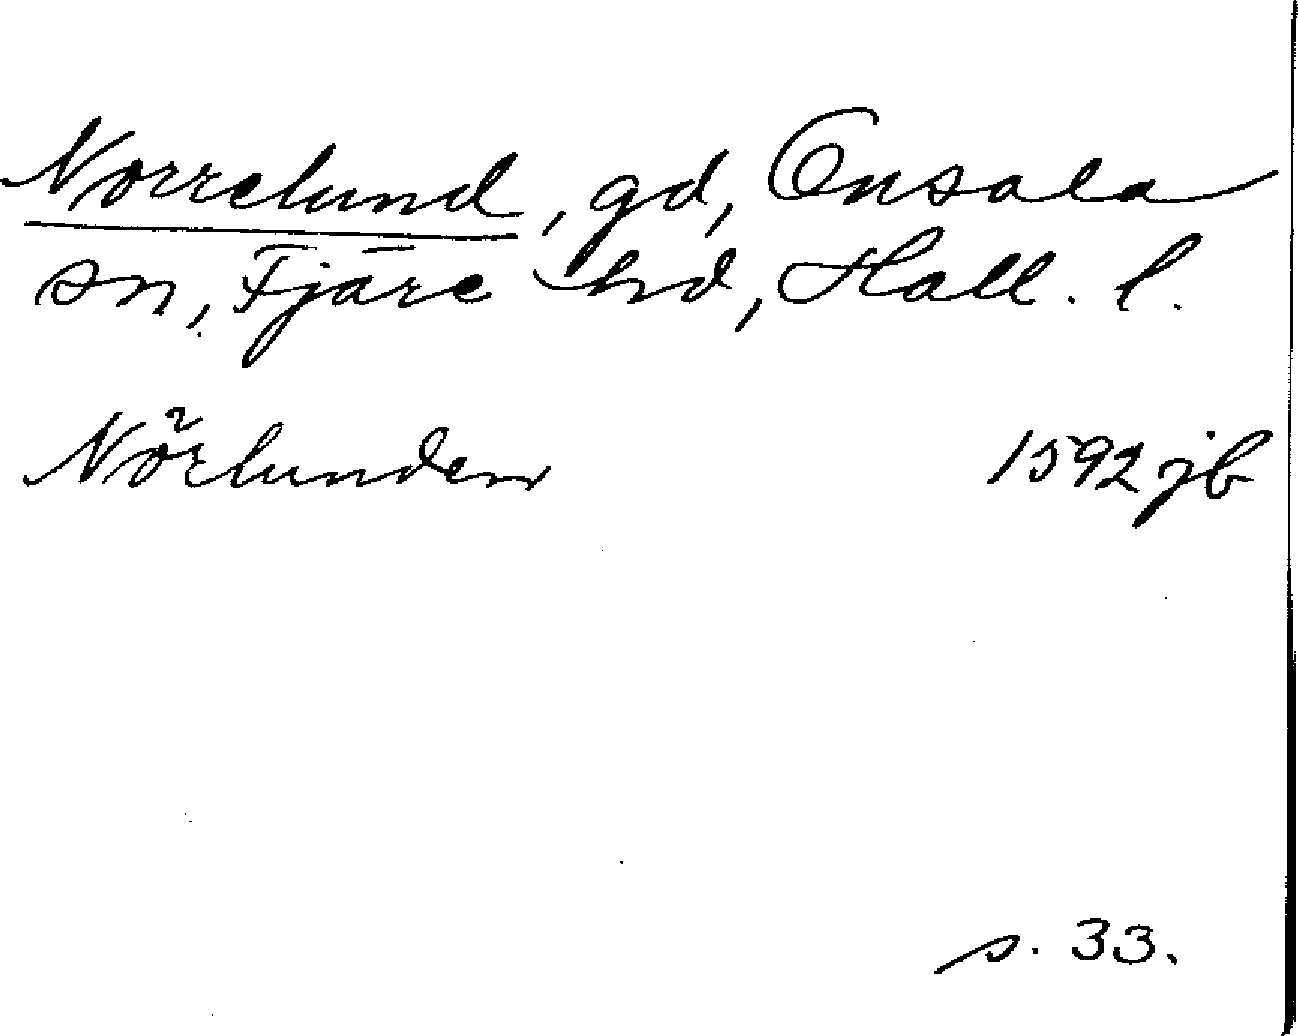 Norrelund, gd, Onsala
sn, Fjäre hd, Hall. l.
Nörlunden 1592 jb
s. 33.